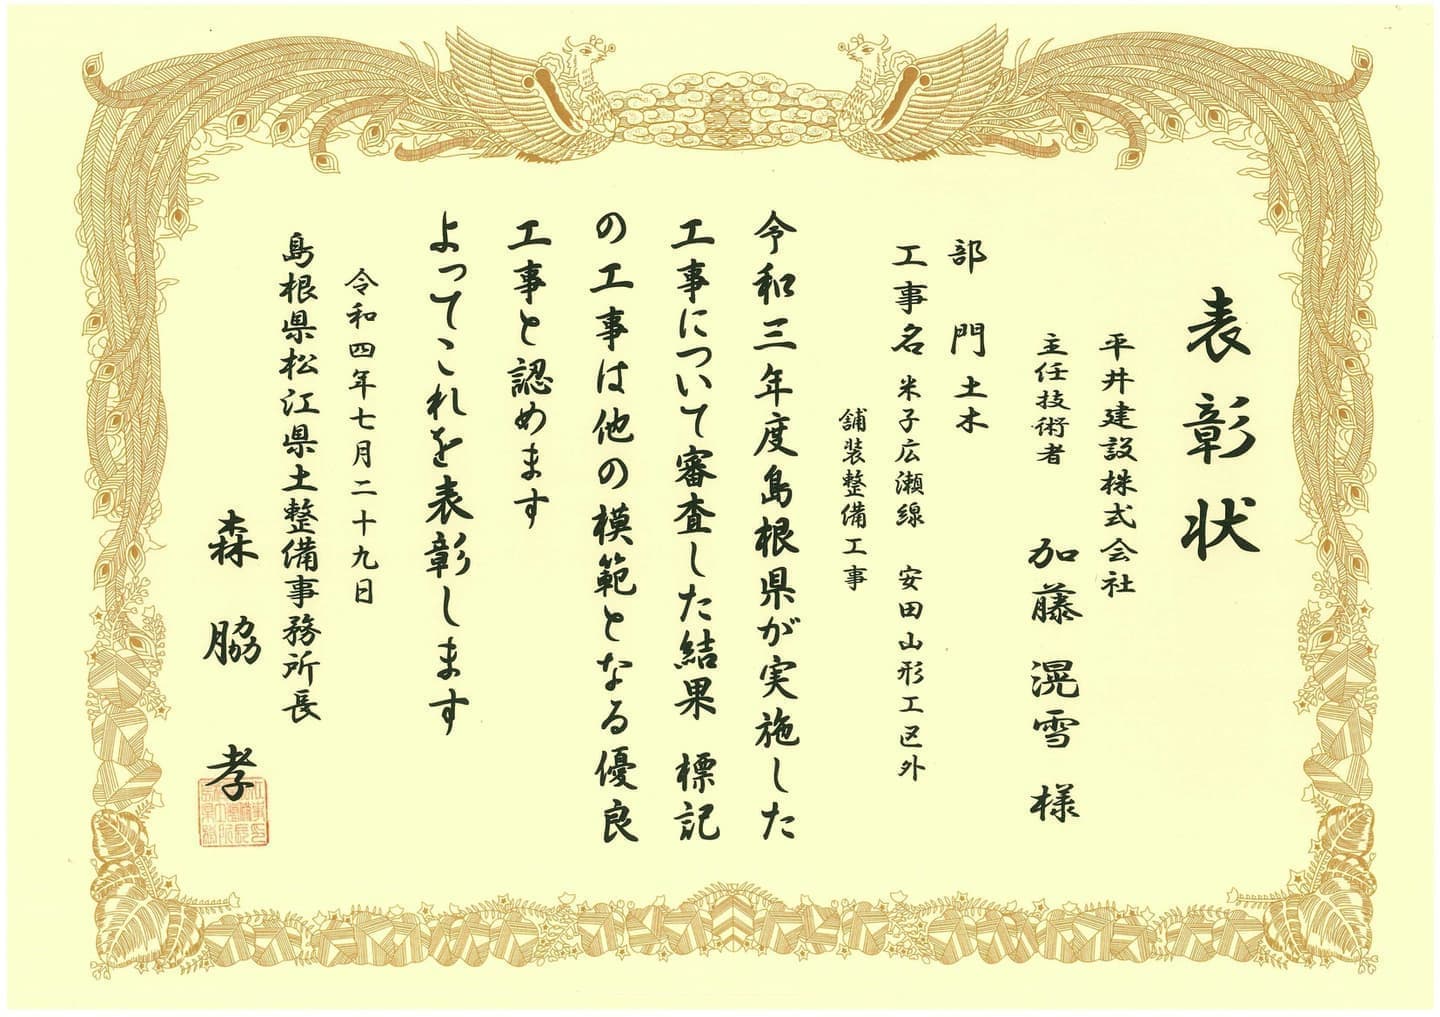 表彰状
平井建設株式会社
主任技術者 加藤 滉雪 様
部門 土木
工事名 米子広瀬線 安田山形工区外
舗装整備工事
令和三年度島根県が実施した
工事について審査した結果 標記
の工事は他の模範となる優良
工事と認めます
よってこれを表彰します
令和四年七月二十九日
島根県松江県土整備事務所長
森脇 孝